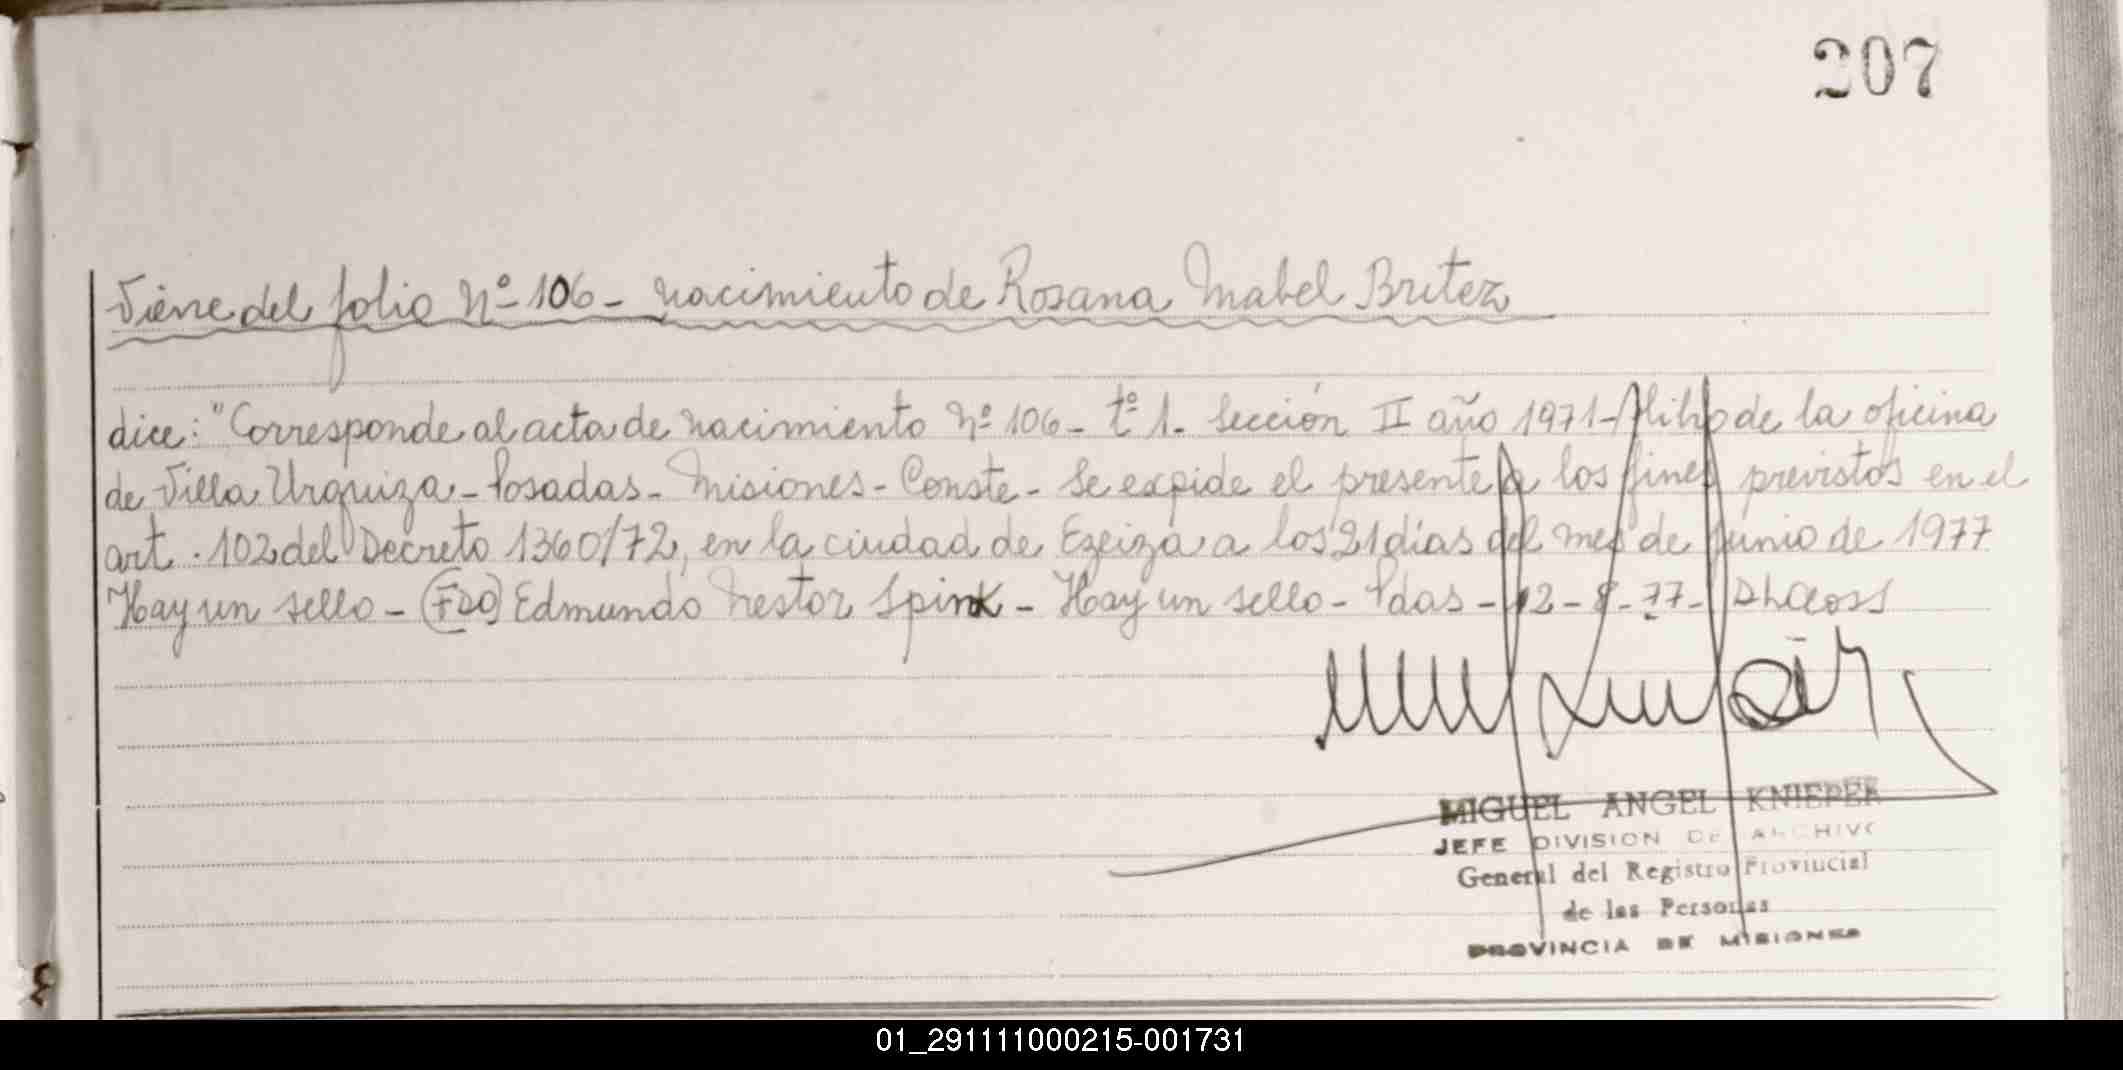 207
Viene del folio Nº 106 - nacimiento de Rosana Mabel Britez
dice: "Corresponde al acta de nacimiento Nº 106 - tº 1 - Sección II año 1971 - libro de la oficina
de Villa Urquiza - Posadas - Misiones - Conste - Se expide el presente a los fines previstos en el
art. 102 del Decreto 1360/72, en la ciudad de Ezeiza a los 21 días del mes de junio de 1977
Hay un sello - (FDO) Edmundo Nestor Spink - Hay un sello - Pdas - 12 - 8 - 77 -
MIGUEL ANGEL KNIEPER
JEFE DIVISION DE ARCHIVO
General del Registro Provincial
de las Personas
PROVINCIA DE MISIONES
01_291111000215-001731